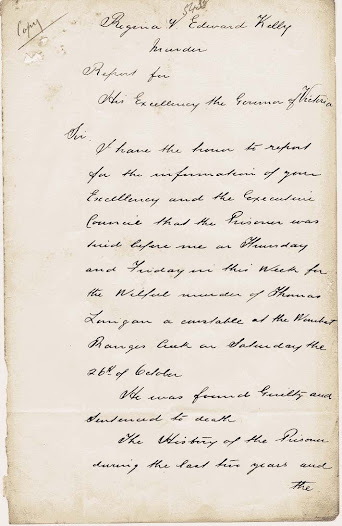 Copy
Regina V. Edward Kelly
Murder
Report for
His Excellency the Governor of Victoria
Sir
I have the honor to report
for the information of your
Excellency and the Executive
Council that the Prisoner was
tried before me on Thursday
and Friday in this Week for
the Wilful murder of Thomas
Lonigan a constable at the Wombat
Ranges Creek on Saturday the
26th of October
He was found Guilty and
Sentenced to death
The History of the Prisoner
during the last two years and
the